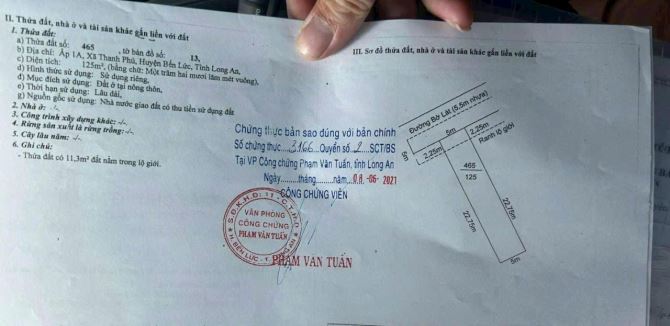 II. Thửa đất, nhà ở và tài sản khác gắn liền với đất
1. Thửa đất:
a) Thửa đất số: 465 , tờ bản đồ số: 13,
b) Địa chỉ: Ấp 1A, Xã Thanh Phú, Huyện Bến Lức, Tỉnh Long An,
c) Diện tích: 125m², (bằng chữ: Một trăm hai mươi lăm mét vuông),
d) Hình thức sử dụng: Sử dụng riêng,
đ) Mục đích sử dụng: Đất ở tại nông thôn,
e) Thời hạn sử dụng: Lâu dài,
g) Nguồn gốc sử dụng: Nhà nước giao đất có thu tiền sử dụng đất
2. Nhà ở: -/-
3. Công trình xây dựng khác: -/-
4. Rừng sản xuất là rừng trồng: -/-
5. Cây lâu năm: -/-
6. Ghi chú:
- Thửa đất có 11,3m² đất nằm trong lộ giới.
Chứng thực bản sao đúng với bản chính
Số chứng thực....3166...Quyển số..2....SCT/BS
Tại VP Công chứng Phạm Văn Tuấn, tỉnh Long An
Ngày.........tháng.........năm..08-06-2021
CÔNG CHỨNG VIÊN
VĂN PHÒNG
CÔNG CHỨNG
PHẠM VĂN TUẤN
H. BẾN LỨC - T. LONG AN
PHẠM VĂN TUẤN
III. Sơ đồ thửa đất, nhà ở và tài sản khác gắn liền với đất
Đường Bờ Lát (5,5m nhựa)
5m
2,25m
Ranh lộ giới
5m
2,25m
465
125
22,75m
22,75m
5m